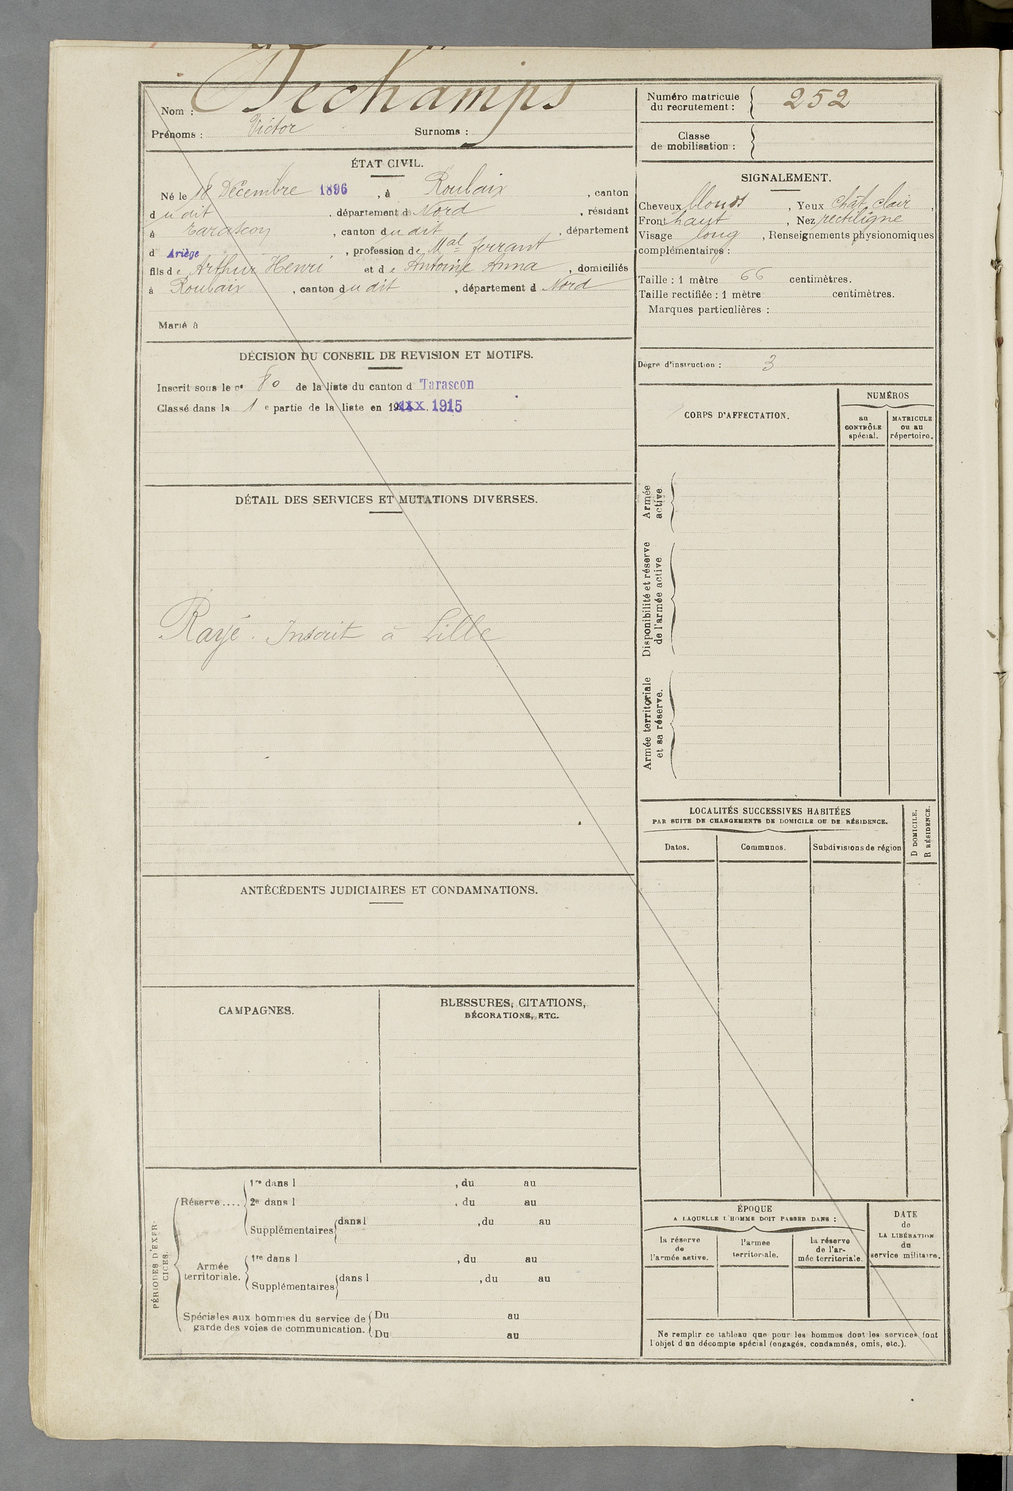 Nom : Dechamps
Prénoms : Victor Surnoms :
ÉTAT CIVIL.
Né le 18 Décembre 1896, à Roubaix, canton
dudit, département d Nord, résidant
à Tarascon, canton dudit, département
d' Ariège, profession de Mal ferrant
fils de Arthur Henri et de Antoine Anna, domiciliés
à Roubaix, canton dudit, département d Nord
Marié à
DÉCISION DU CONSEIL DE REVISION ET MOTIFS.
Inscrit sous le no 80 de la liste du canton d Tarascon
Classé dans la 1 e partie de la liste en 1915
DÉTAIL DES SERVICES ET MUTATIONS DIVERSES.
Rayé. Inscrit à Lille
ANTÉCÉDENTS JUDICIAIRES ET CONDAMNATIONS.
CAMPAGNES.
BLESSURES, CITATIONS,
DÉCORATIONS, ETC.
PÉRIODES D'EXERCICES.
Réserve....
1re dans l , du au
2e dans l , du au
Supplémentaires dans l , du au
Armée
territoriale.
1re dans l , du au
Supplémentaires dans l , du au
Spéciales aux hommes du service de
garde des voies de communication.
Du au
Du au
Numéro matricule
du recrutement : 252
Classe
de mobilisation :
SIGNALEMENT.
Cheveux blonds, Yeux chât. clair,
Front haut, Nez rectiligne
Visage long, Renseignements physionomiques
complémentaires :
Taille : 1 mètre 66 centimètres.
Taille rectifiée : 1 mètre centimètres.
Marques particulières :
Degré d'instruction : 3
CORPS D'AFFECTATION.
NUMÉROS
au
CONTRÔLE
spécial.
MATRICULE
OU AU
répertoire.
Armée
active
Disponibilité et réserve
de l'armée active
Armée territoriale
et sa réserve.
LOCALITÉS SUCCESSIVES HABITÉES
PAR SUITE DE CHANGEMENTS DE DOMICILE OU DE RÉSIDENCE.
Dates.
Communes.
Subdivisions de région
D DOMICILE.
R RÉSIDENCE.
ÉPOQUE
A LAQUELLE L'HOMME DOIT PASSER DANS :
la réserve
de
l'armée active.
l'armée
territoriale.
la réserve
de l'ar-
mée territoriale.
DATE
de
LA LIBÉRATION
du
service militaire.
Ne remplir ce tableau que pour les hommes dont les services font
l'objet d'un décompte spécial (engagés, condamnés, omis, etc.).